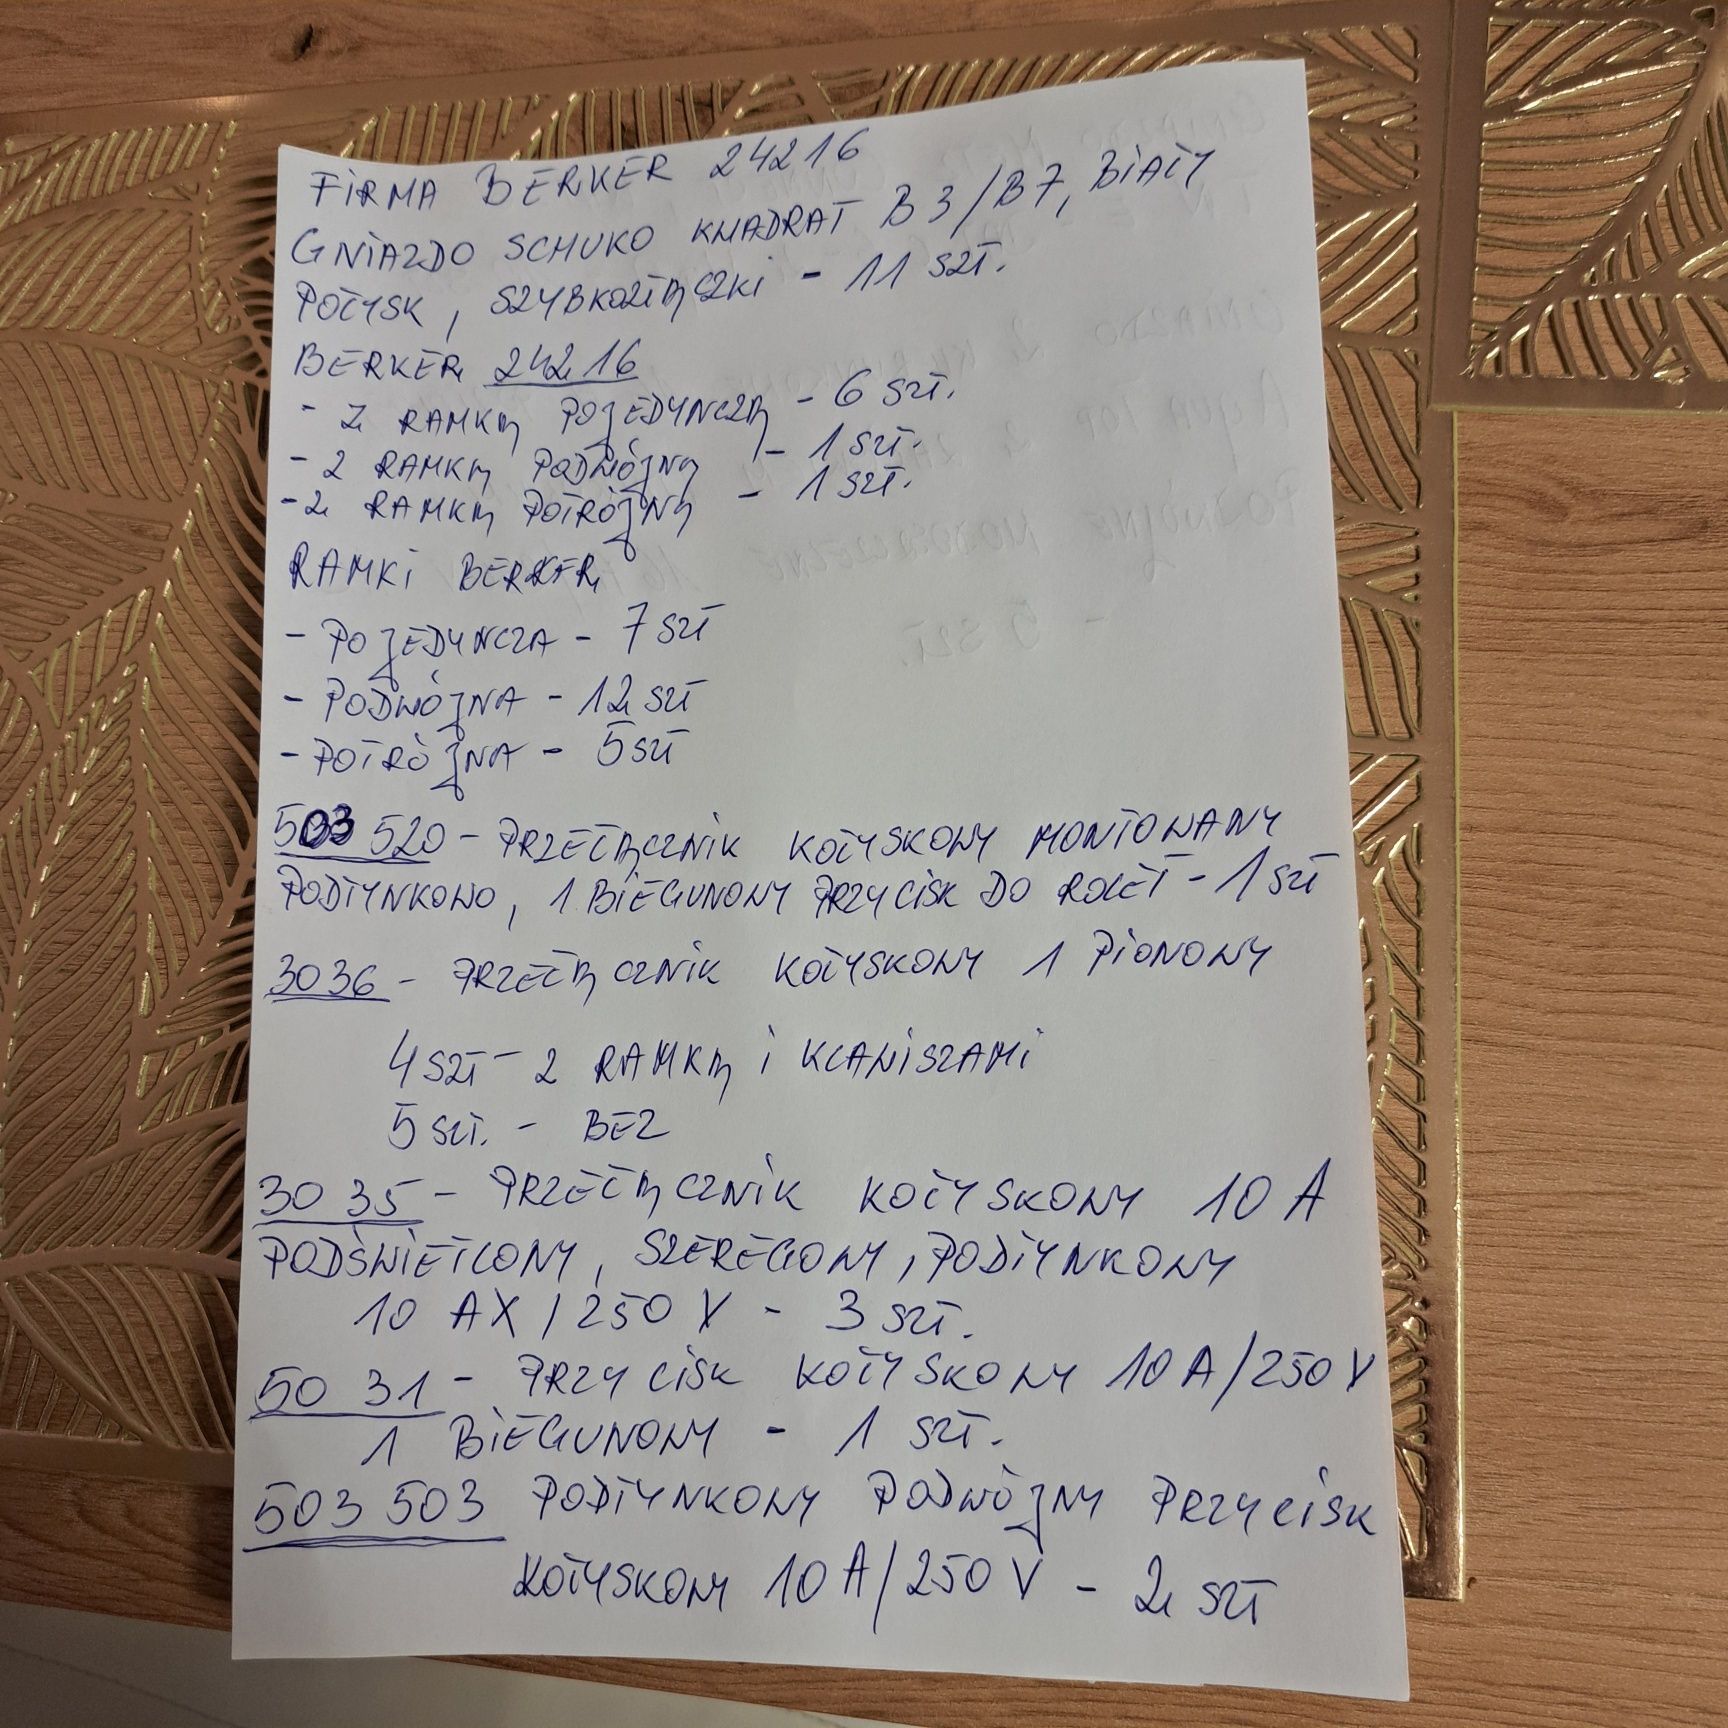 FIRMA BERKER 24216
GNIAZDO SCHUKO KWADRAT B3/B7, BIAŁY
POŁYSK, SZYBKOZŁĄCZKI - 11 SZT.
BERKER 24216
- Z RAMKĄ POJEDYNCZĄ - 6 SZT.
- Z RAMKĄ PODWÓJNĄ - 1 SZT.
- Z RAMKĄ POTRÓJNĄ - 1 SZT.
RAMKI BERKER
- POJEDYNCZA - 7 SZT
- PODWÓJNA - 12 SZT
- POTRÓJNA - 5 SZT
503 520 - PRZEŁĄCZNIK KOŁYSKOWY MONTOWANY
PODTYNKOWO, 1 BIEGUNOWY PRZYCISK DO ROLET - 1 SZT
3036 - PRZEŁĄCZNIK KOŁYSKOWY 1 PIONOWY
4 SZT - Z RAMKĄ I KLAWISZAMI
5 SZT. - BEZ
3035 - PRZEŁĄCZNIK KOŁYSKOWY 10 A
PODŚWIETLONY, SZEREGOWY, PODTYNKOWY
10 AX / 250 V - 3 SZT.
5031 - PRZYCISK KOŁYSKOWY 10 A/250 V
1 BIEGUNOWY - 1 SZT.
503 503 PODTYNKOWY PODWÓJNY PRZYCISK
KOŁYSKOWY 10 A/250 V - 2 SZT